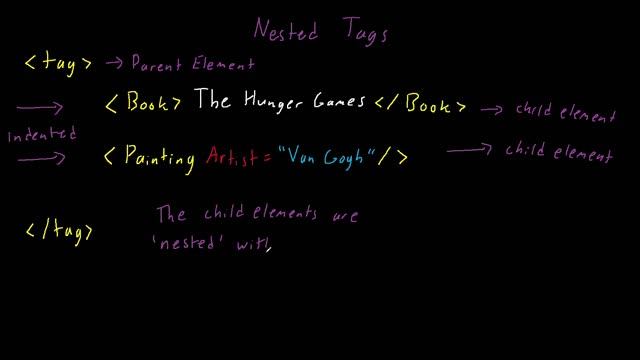 Nested Tags
<tag> → Parent Element
<Book> The Hunger Games </Book> → child element
indented
<Painting Artist = "Van Gogh" /> → child element
</tag>
The child elements are
'nested' with